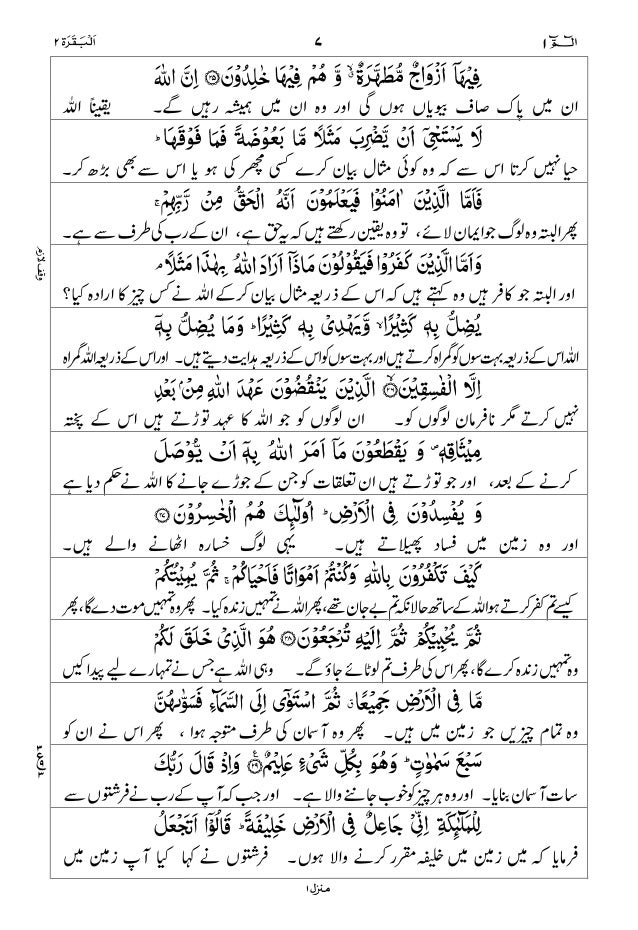 الٓـمّٓ ١ ٧ اَلْبَقَرَة ٢
فِيْهَاۤ اَزْوَاجٌ مُّطَهَّرَةٌ ۙ وَّ هُمْ فِيْهَا خٰلِدُوْنَ ۝۲۵ اِنَّ اللّٰهَ
ان میں پاک صاف بیویاں ہوں گی اور وہ ان میں ہمیشہ رہیں گے۔ یقیناً اللہ
لَا يَسْتَحْيٖۤ اَنْ يَّضْرِبَ مَثَلًا مَّا بَعُوْضَةً فَمَا فَوْقَهَا ؕ
حیا نہیں کرتا اس سے کہ وہ کوئی مثال بیان کرے کسی مچھر کی ہو یا اس سے بھی بڑھ کر۔
فَاَمَّا الَّذِيْنَ اٰمَنُوْا فَيَعْلَمُوْنَ اَنَّهُ الْحَقُّ مِنْ رَّبِّهِمْ ۚ
پھر البتہ وہ لوگ جو ایمان لائے، تو وہ یقین رکھتے ہیں کہ یہ حق ہے، ان کے رب کی طرف سے ہے۔
وَاَمَّا الَّذِيْنَ كَفَرُوْا فَيَقُوْلُوْنَ مَاذَاۤ اَرَادَ اللّٰهُ بِهٰذَا مَثَلًا ۘ
وقف لازم
اور البتہ جو کافر ہیں وہ کہتے ہیں کہ اس کے ذریعہ مثال بیان کر کے اللہ نے کس چیز کا ارادہ کیا؟
يُضِلُّ بِهٖ كَثِيْرًا ۙ وَّيَهْدِيْ بِهٖ كَثِيْرًا ؕ وَمَا يُضِلُّ بِهٖۤ
اللہ اس کے ذریعہ بہت سوں کو گمراہ کرتے ہیں اور بہت سوں کو اس کے ذریعہ ہدایت دیتے ہیں۔ اور اس کے ذریعہ اللہ گمراہ
اِلَّا الْفٰسِقِيْنَ ۝۲۶ۙ الَّذِيْنَ يَنْقُضُوْنَ عَهْدَ اللّٰهِ مِنْۢ بَعْدِ
نہیں کرتے مگر نافرمان لوگوں کو۔ ان لوگوں کو جو اللہ کا عہد توڑتے ہیں اس کے پختہ
مِيْثَاقِهٖ ۪ وَ يَقْطَعُوْنَ مَاۤ اَمَرَ اللّٰهُ بِهٖۤ اَنْ يُّوْصَلَ
کرنے کے بعد، اور جو توڑتے ہیں ان تعلقات کو جن کے جوڑے جانے کا اللہ نے حکم دیا ہے
وَ يُفْسِدُوْنَ فِي الْاَرْضِ ؕ اُولٰٓئِكَ هُمُ الْخٰسِرُوْنَ ۝۲۷
اور وہ زمین میں فساد پھیلاتے ہیں۔ یہی لوگ خسارہ اٹھانے والے ہیں۔
كَيْفَ تَكْفُرُوْنَ بِاللّٰهِ وَكُنْتُمْ اَمْوَاتًا فَاَحْيَاكُمْ ۚ ثُمَّ يُمِيْتُكُمْ
کیسے تم کفر کرتے ہو اللہ کے ساتھ حالانکہ تم بے جان تھے، پھر اللہ نے تمہیں زندہ کیا۔ پھر وہ تمہیں موت دے گا، پھر
ثُمَّ يُحْيِيْكُمْ ثُمَّ اِلَيْهِ تُرْجَعُوْنَ ۝۲۸ هُوَ الَّذِيْ خَلَقَ لَكُمْ
وہ تمہیں زندہ کرے گا، پھر اس کی طرف تم لوٹائے جاؤ گے۔ وہی اللہ ہے جس نے تمہارے لیے پیدا کیں
مَّا فِي الْاَرْضِ جَمِيْعًا ۗ ثُمَّ اسْتَوٰۤى اِلَى السَّمَآءِ فَسَوّٰىهُنَّ
وہ تمام چیزیں جو زمین میں ہیں۔ پھر وہ آسمان کی طرف متوجہ ہوا، پھر اس نے ان کو
سَبْعَ سَمٰوٰتٍ ؕ وَهُوَ بِكُلِّ شَيْءٍ عَلِيْمٌ ۝۲۹ وَاِذْ قَالَ رَبُّكَ
سات آسمان بنایا۔ اور وہ ہر چیز کو خوب جاننے والا ہے۔ اور جب کہ آپ کے رب نے فرشتوں سے
لِلْمَلٰٓئِكَةِ اِنِّيْ جَاعِلٌ فِي الْاَرْضِ خَلِيْفَةً ؕ قَالُوْۤا اَتَجْعَلُ
فرمایا کہ میں زمین میں خلیفہ مقرر کرنے والا ہوں۔ فرشتوں نے کہا کیا آپ زمین میں
منزل ١